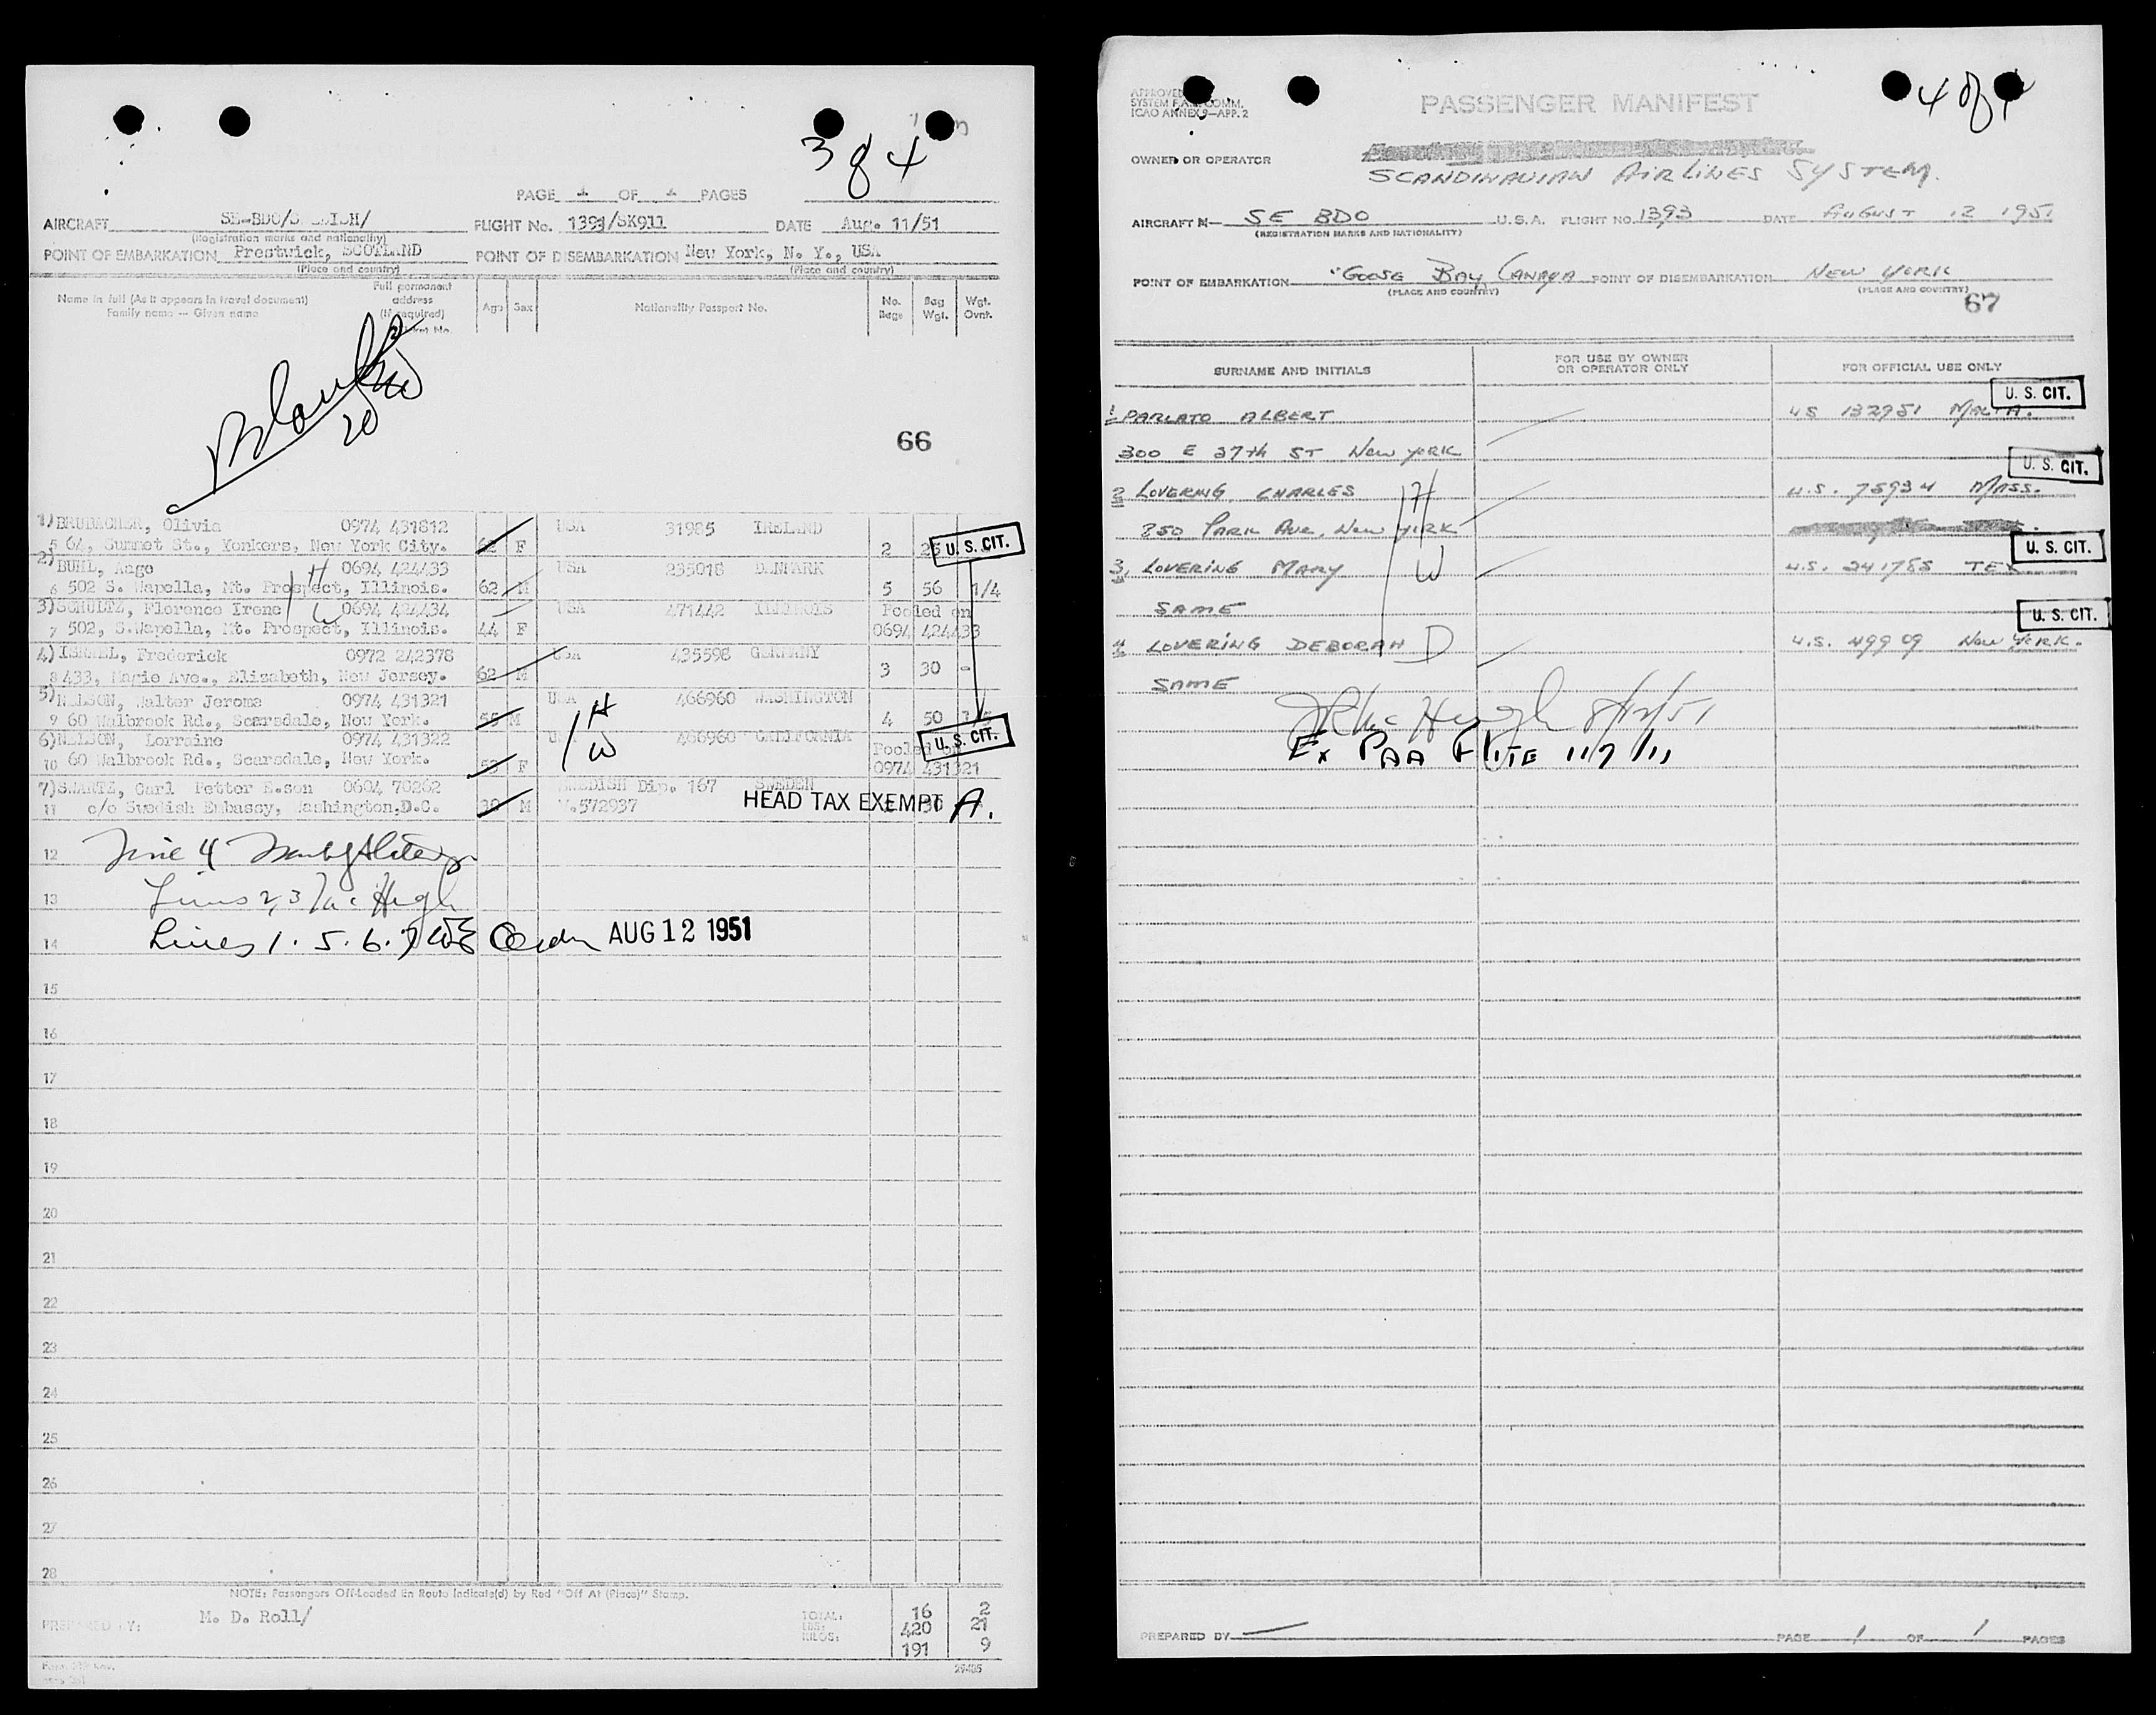 3 of 4
PAGE 1 OF 1 PAGES
AIRCRAFT SE-BDO/S FLIGHT No. /SK911 DATE Aug. 11/51
(Registration marks and nationality)
POINT OF EMBARKATION Prestwick, SCOTLAND POINT OF DISEMBARKATION New York, N. Y., USA
(Place and country) (Place and country)
Name in full (As it appears in travel document) Family name — Given name
Full permanent address (if required)
Age Sex Nationality Passport No. No. Bags Bag Wgt. Wgt. Ovnt.
66
1) BRUBACHER, Olivia 0974 431812 USA 31985 IRELAND
5 64, Summet St., Yonkers, New York City. 62 F 2 U. S. CIT.
2) BUHL, Aago H 0694 424433 USA 235018 DENMARK
6 502 S. Wapella, Mt. Prospect, Illinois. 62 M 5 56 1/4
3) SCHULTZ, Florence Irene W 0694 424434 USA 471442 ILLINOIS Pooled on
7 502, S.Wapella, Mt. Prospect, Illinois. 44 F 0694 424433
4) ISRAEL, Frederick 0972 242378 USA 435598 GERMANY
8 433, Magie Ave., Elizabeth, New Jersey. 62 M 3 30 -
5) NELSON, Walter Jerome 0974 431321 USA 466960 WASHINGTON
9 60 Walbrook Rd., Scarsdale, New York. 55 M H 4 50
6) NELSON, Lorraine 0974 431322 W 466960 CALIFORNIA Pooled on U. S. CIT.
10 60 Walbrook Rd., Scarsdale, New York. 53 F 0974 431321
7) SWARTZ, Carl Petter E.son 0604 70262 SWEDISH Dip. 167 SWEDEN
11 c/o Swedish Embassy, Washington,D.C. 30 M V.572937 HEAD TAX EXEMPT A.
12 Line 4
13 Lines 2,3 McHugh
14 Lines 1. 5. 6. 7 AUG 12 1951
15
16
17
18
19
20
21
22
23
24
25
26
27
28
NOTE: Passengers Off-Loaded En Route Indicate(d) by Red "Off At (Place)" Stamp.
PREPARED BY: M. D. Roll/
TOTAL: 16 2
LBS: 420 21
KILOS: 191 9
4 of 4
APPROVED
SYSTEM F.A.L. COMM.
ICAO ANNEX 9—APP. 2
PASSENGER MANIFEST
OWNER OR OPERATOR
SCANDINAVIAN AIRLINES SYSTEM.
AIRCRAFT N— SE BDO U.S.A. FLIGHT NO. 1393 DATE AUGUST 12 1951
(REGISTRATION MARKS AND NATIONALITY)
POINT OF EMBARKATION GOOSE BAY CANADA POINT OF DISEMBARKATION NEW YORK
(PLACE AND COUNTRY) (PLACE AND COUNTRY)
67
SURNAME AND INITIALS FOR USE BY OWNER OR OPERATOR ONLY FOR OFFICIAL USE ONLY
U. S. CIT.
1 PARLATO ALBERT US 132751 MALTA.
300 E 37th ST NEW YORK
U. S. CIT.
2 LOVERING CHARLES H U.S. 75934 MASS.
850 PARK AVE, NEW YORK
U. S. CIT.
3, LOVERING MARY W U.S. 241785 TEX
SAME
U. S. CIT.
4 LOVERING DEBORAH D U.S. 49909 NEW YORK.
SAME
McHugh 8/12/51
EX PAA FLITE 117/11
PREPARED BY PAGE 1 OF 1 PAGES